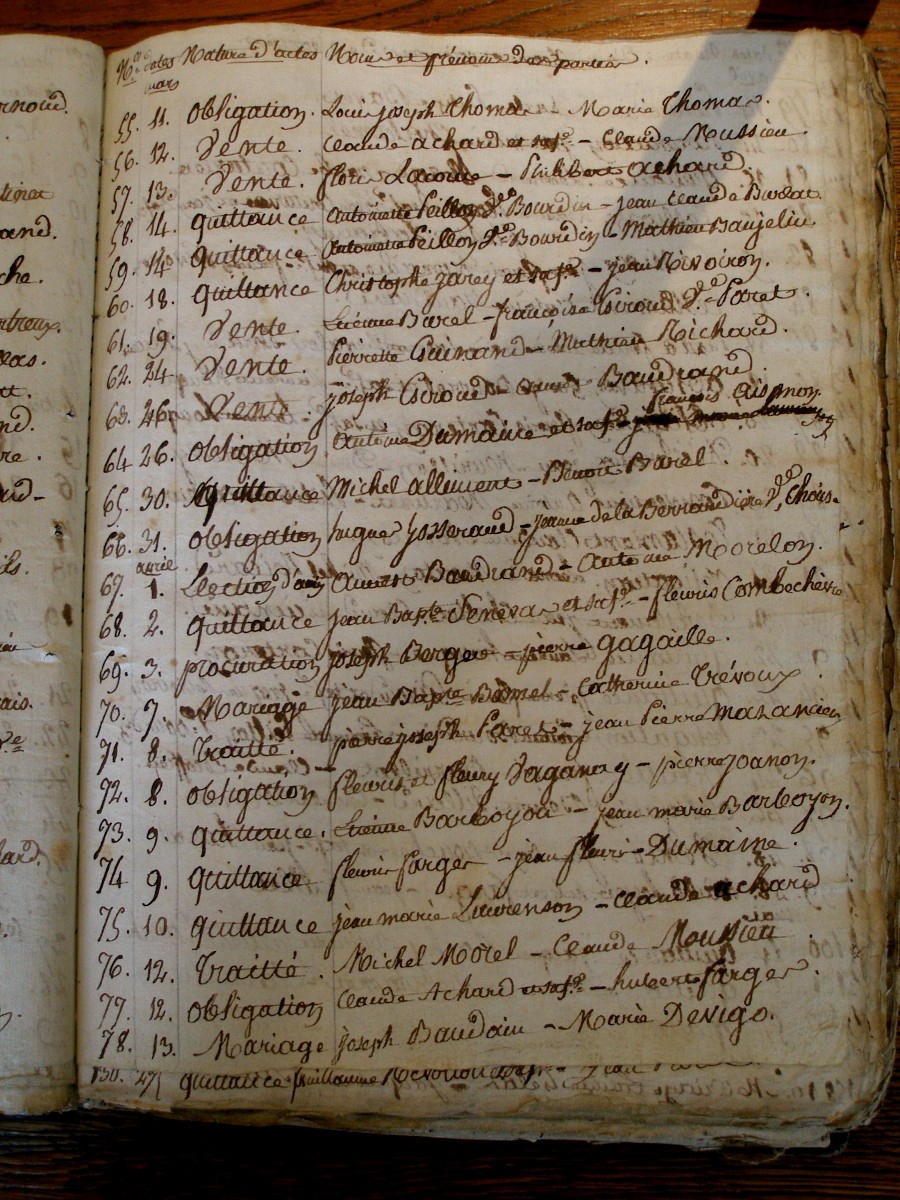 Nos dates Nature d'actes Noms et prénoms des parties.
mars
55. 11. obligation. Louis joseph Thomas - Marie Thomas.
56. 12. Vente. Claude achard et sa fe - Claude Mussieu.
57. 13. Vente. flori Lacome - Philibert achard.
58. 14. quittance antoinette Peillon Ve Bourdin - jean claude Burdat
59. 14 quittance antoinette Peillon Ve Bourdin - Mathieu Baujelin
60. 18. quittance Christophe jarey et sa fe - jean Rivoiron.
61. 19. Vente. Etienne Barel - françoise Giroud Ve Paret.
62. 24 Vente. Pierrette Guinand - Mathieu Richard.
63. 26. Vente joseph Giroud - Baudrand.
françois aismon.
64 26. obligation antoine Dumaine et sa fe
65. 30. quittance Michel alliment - Benoit Barel.
66. 31. obligation hugue josserand - jeanne de la Berrandière Ve Thois.
avril
67. 1. Election d'ami Baudrand - antoine Morelon.
68. 2. quittance jean Bapte Seneva et sa fe - fleuris Combechèvre
69. 3. procuration joseph Berger - pierre gagaille.
70. 7. Mariage jean Bapte - Catherine Trévoux.
71. 8. Traitté. pierre joseph Paret - jean Pierre Mazancieu
72. 8. obligation fleuris et fleury Daganay - pierre joanon.
73. 9. quittance. Etienne Barboyon - jean marie Barboyon.
74 9. quittance fleuris farger - jean fleuris Dumaine.
75. 10. quittance jean marie Laurenson - Claude achard
76. 12. Traitté. Michel Morel - Claude Moussieu
77. 12. obligation Claude Achard et sa fe - hubert farger.
78. 13. Mariage joseph Baudain - Marie Devigo.
130. 27 quittance Guillaume